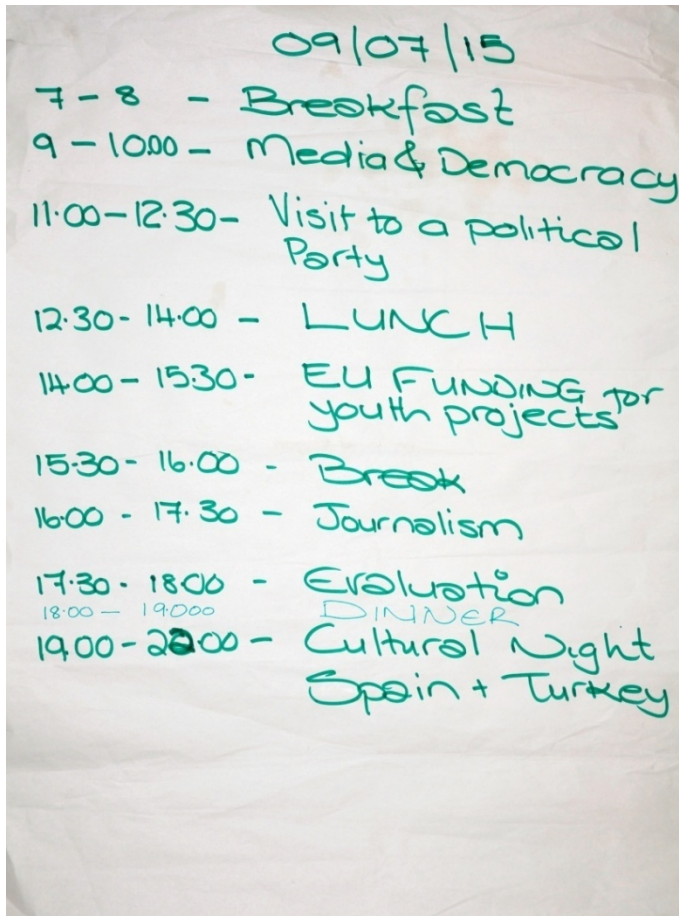 09/07/15
7 - 8 - Breakfast
9 - 10.00 - Media & Democracy
11.00 - 12.30 - Visit to a political
Party
12.30 - 14.00 - LUNCH
14.00 - 15.30 - EU FUNDING for
youth projects
15.30 - 16.00 - Break
16.00 - 17.30 - Journalism
17.30 - 18.00 - Evaluation
18.00 - 19.000 DINNER
19.00 - 22.00 - Cultural Night
Spain + Turkey